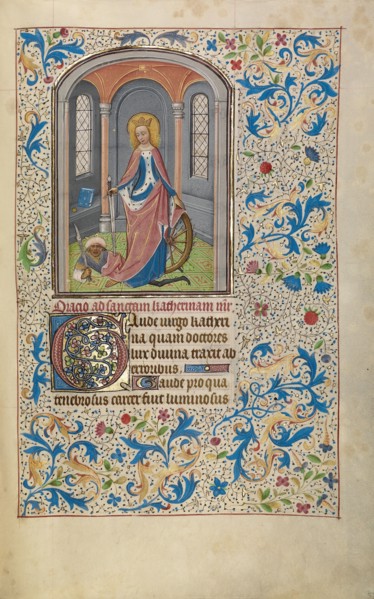 Oracio ad sanctam katherinam vir
Gaude virgo katheri
na quam doctores
lux divina traxit ab
erroribus.
Gaude pro qua
tenebrosus carcer fuit luminosus